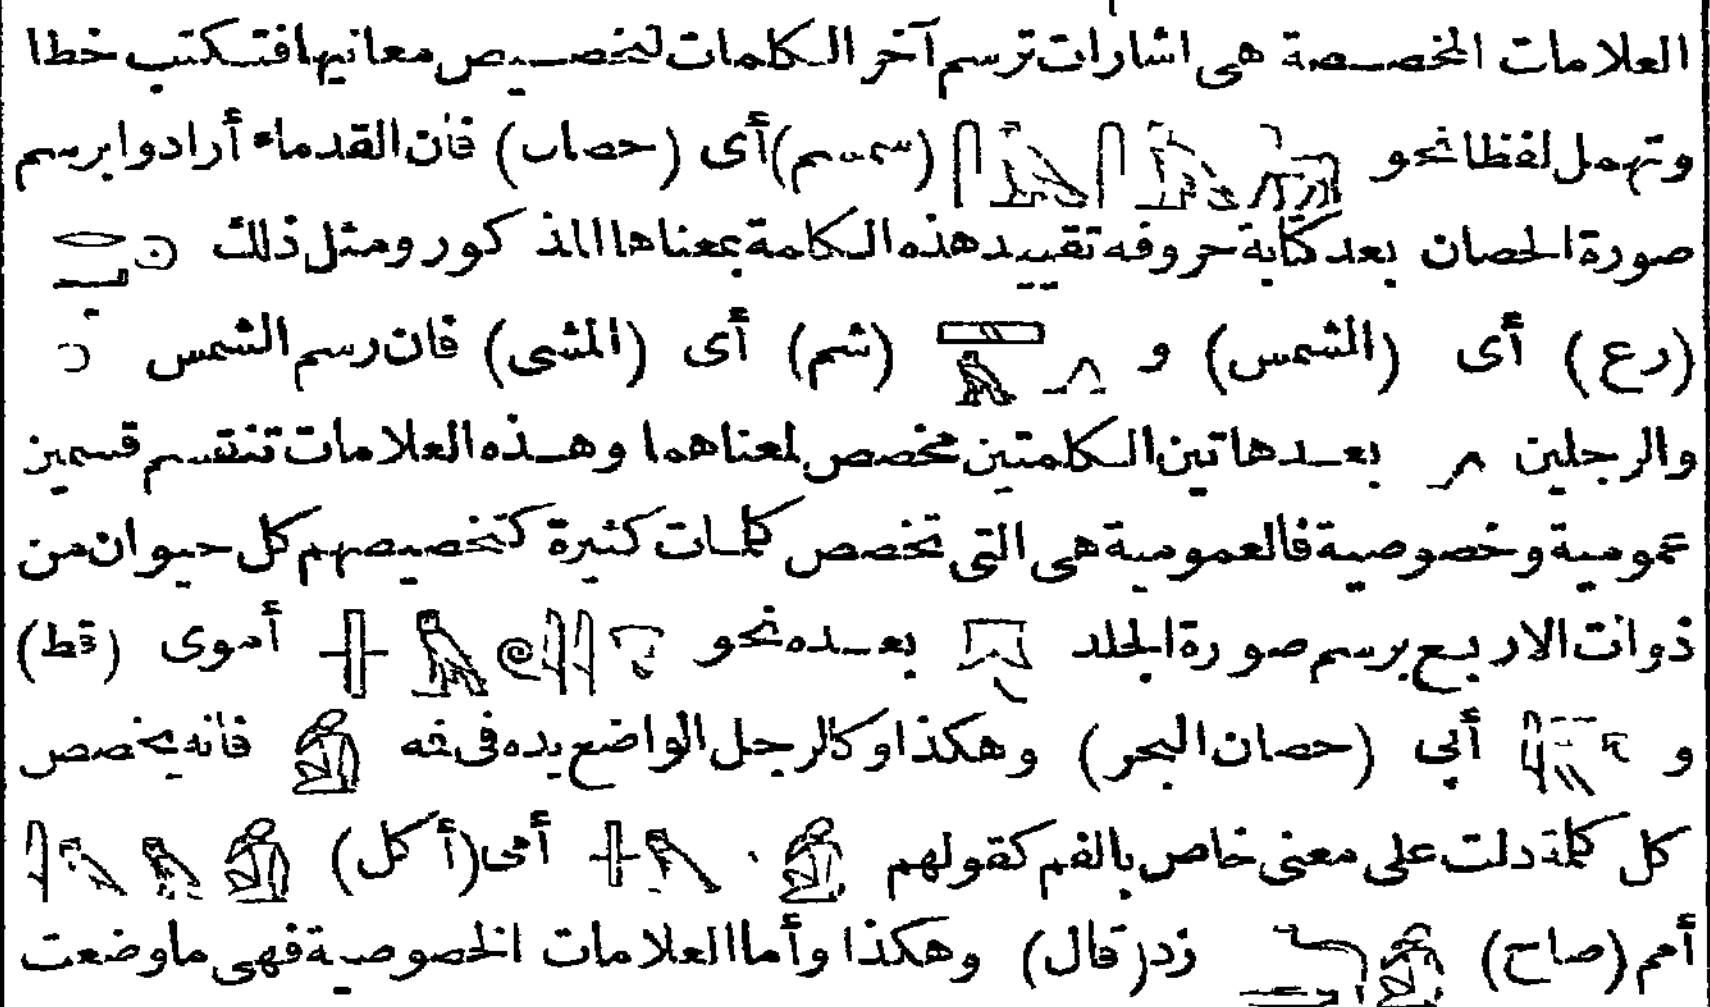 العلامات المخصصة هى اشارات ترسم آخر الكلمات لتخصيص معانيها فتكتب خطا
وتهمل لفظا نحو (سمسم) أى (حصان) فان القدماء أرادوا برسم
صورة الحصان بعد كتابة حروفه تقييد هذه الكلمة بمعناها المذكور ومثل ذلك
(رع) أى (الشمس) و (شم) أى (المشى) فان رسم الشمس
والرجلين بعد هاتين الكلمتين مخصص لمعناهما وهذه العلامات تنقسم قسمين
عمومية وخصوصية فالعمومية هى التى تخصص كلمات كثيرة كتخصيصهم كل حيوان من
ذوات الاربع برسم صورة الجلد بعده نحو أموى (قط)
و أبى (حصان البحر) وهكذا وكالرجل الواضع يده فى فمه فانه يخصص
كل كلمة دلت على معنى خاص بالفم كقولهم أمى (أكل)
أمم (صاح) زد (قال) وهكذا وأما العلامات الخصوصية فهى ما وضعت